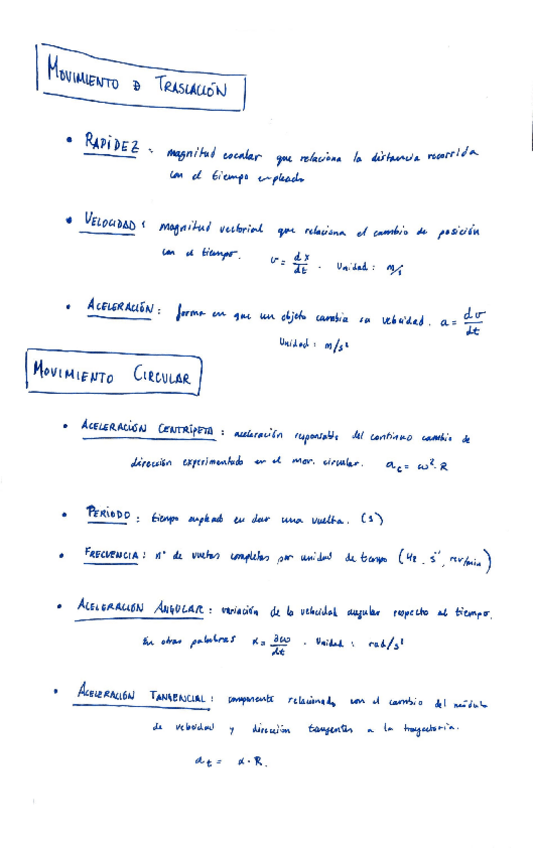 MOVIMIENTO D TRASLACIÓN
• RAPIDEZ: magnitud escalar que relaciona la distancia recorrida
con el tiempo empleado
• VELOCIDAD: magnitud vectorial que relaciona el cambio de posición
con el tiempo. v = dx/dt. Unidad: m/s
• ACELERACIÓN: forma en que un objeto cambia su velocidad. a = dv/dt
Unidad: m/s²
MOVIMIENTO CIRCULAR
• ACELERACIÓN CENTRÍPETA: aceleración responsable del continuo cambio de
dirección experimentado en el mov. circular. ac = ω². R
• PERIODO: tiempo empleado en dar una vuelta. (s)
• FRECUENCIA: nº de vueltas completas por unidad de tiempo (Hz, s⁻¹, rev/min)
• ACELERACIÓN ANGULAR: variación de la velocidad angular respecto al tiempo.
En otras palabras α = ∂ω/dt. Unidad: rad/s²
• ACELERACIÓN TANGENCIAL: componente relacionada con el cambio del módulo
de velocidad y dirección tangentes a la trayectoria.
at = α · R.